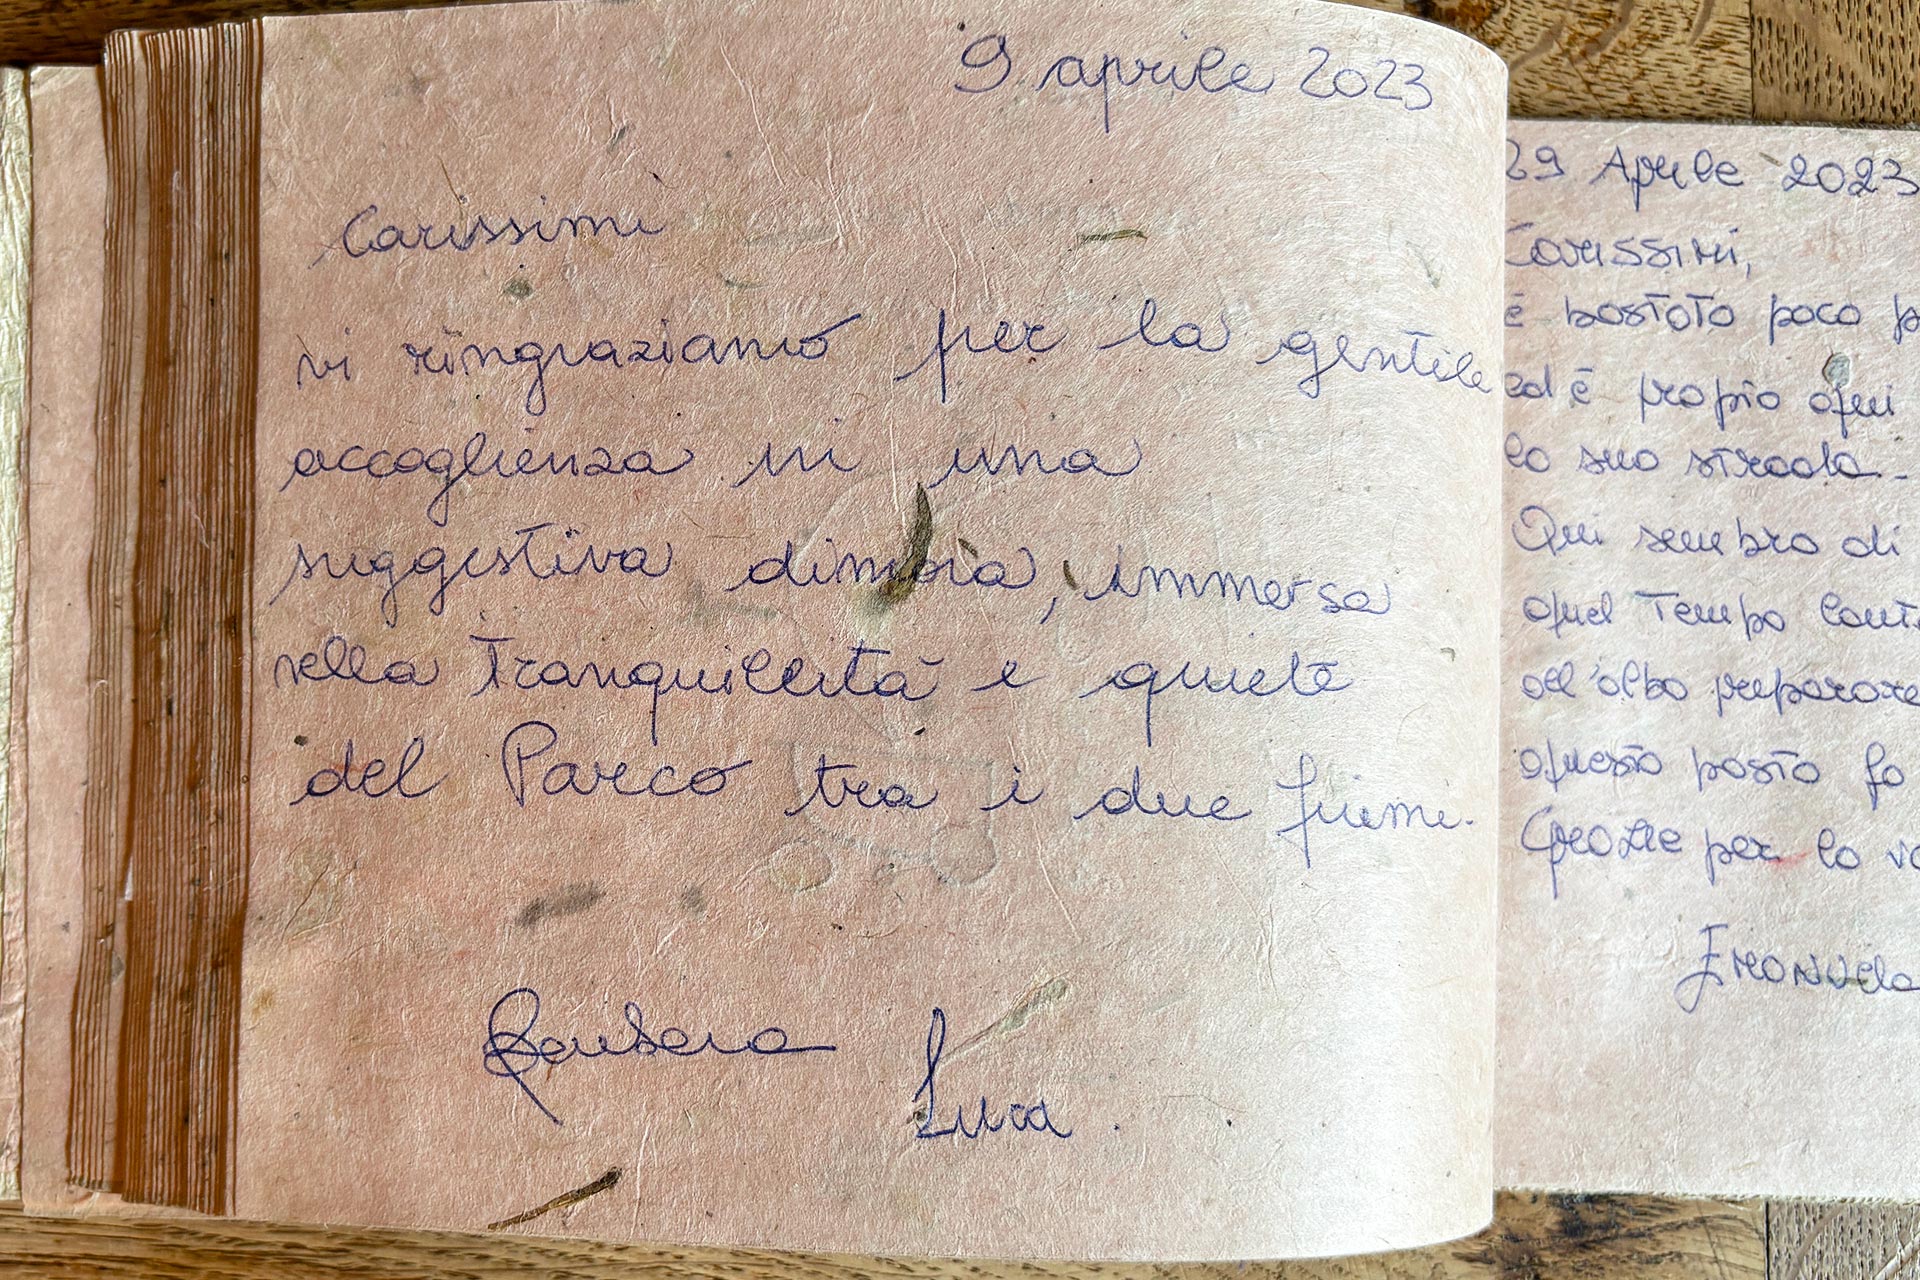 9 aprile 2023
Carissimi
vi ringraziamo per la gentile
accoglienza in una
suggestiva dimora, immersa
nella tranquillità e quiete
del Parco tra i due fiumi.
Barbara
Luca.
29 Aprile 2023
Carissimi,
è bastato poco
ed è proprio qui
la sua strada.
Qui sembra di
quel tempo
all'alba preparare
questo posto fa
Grazie per la
Emanuela